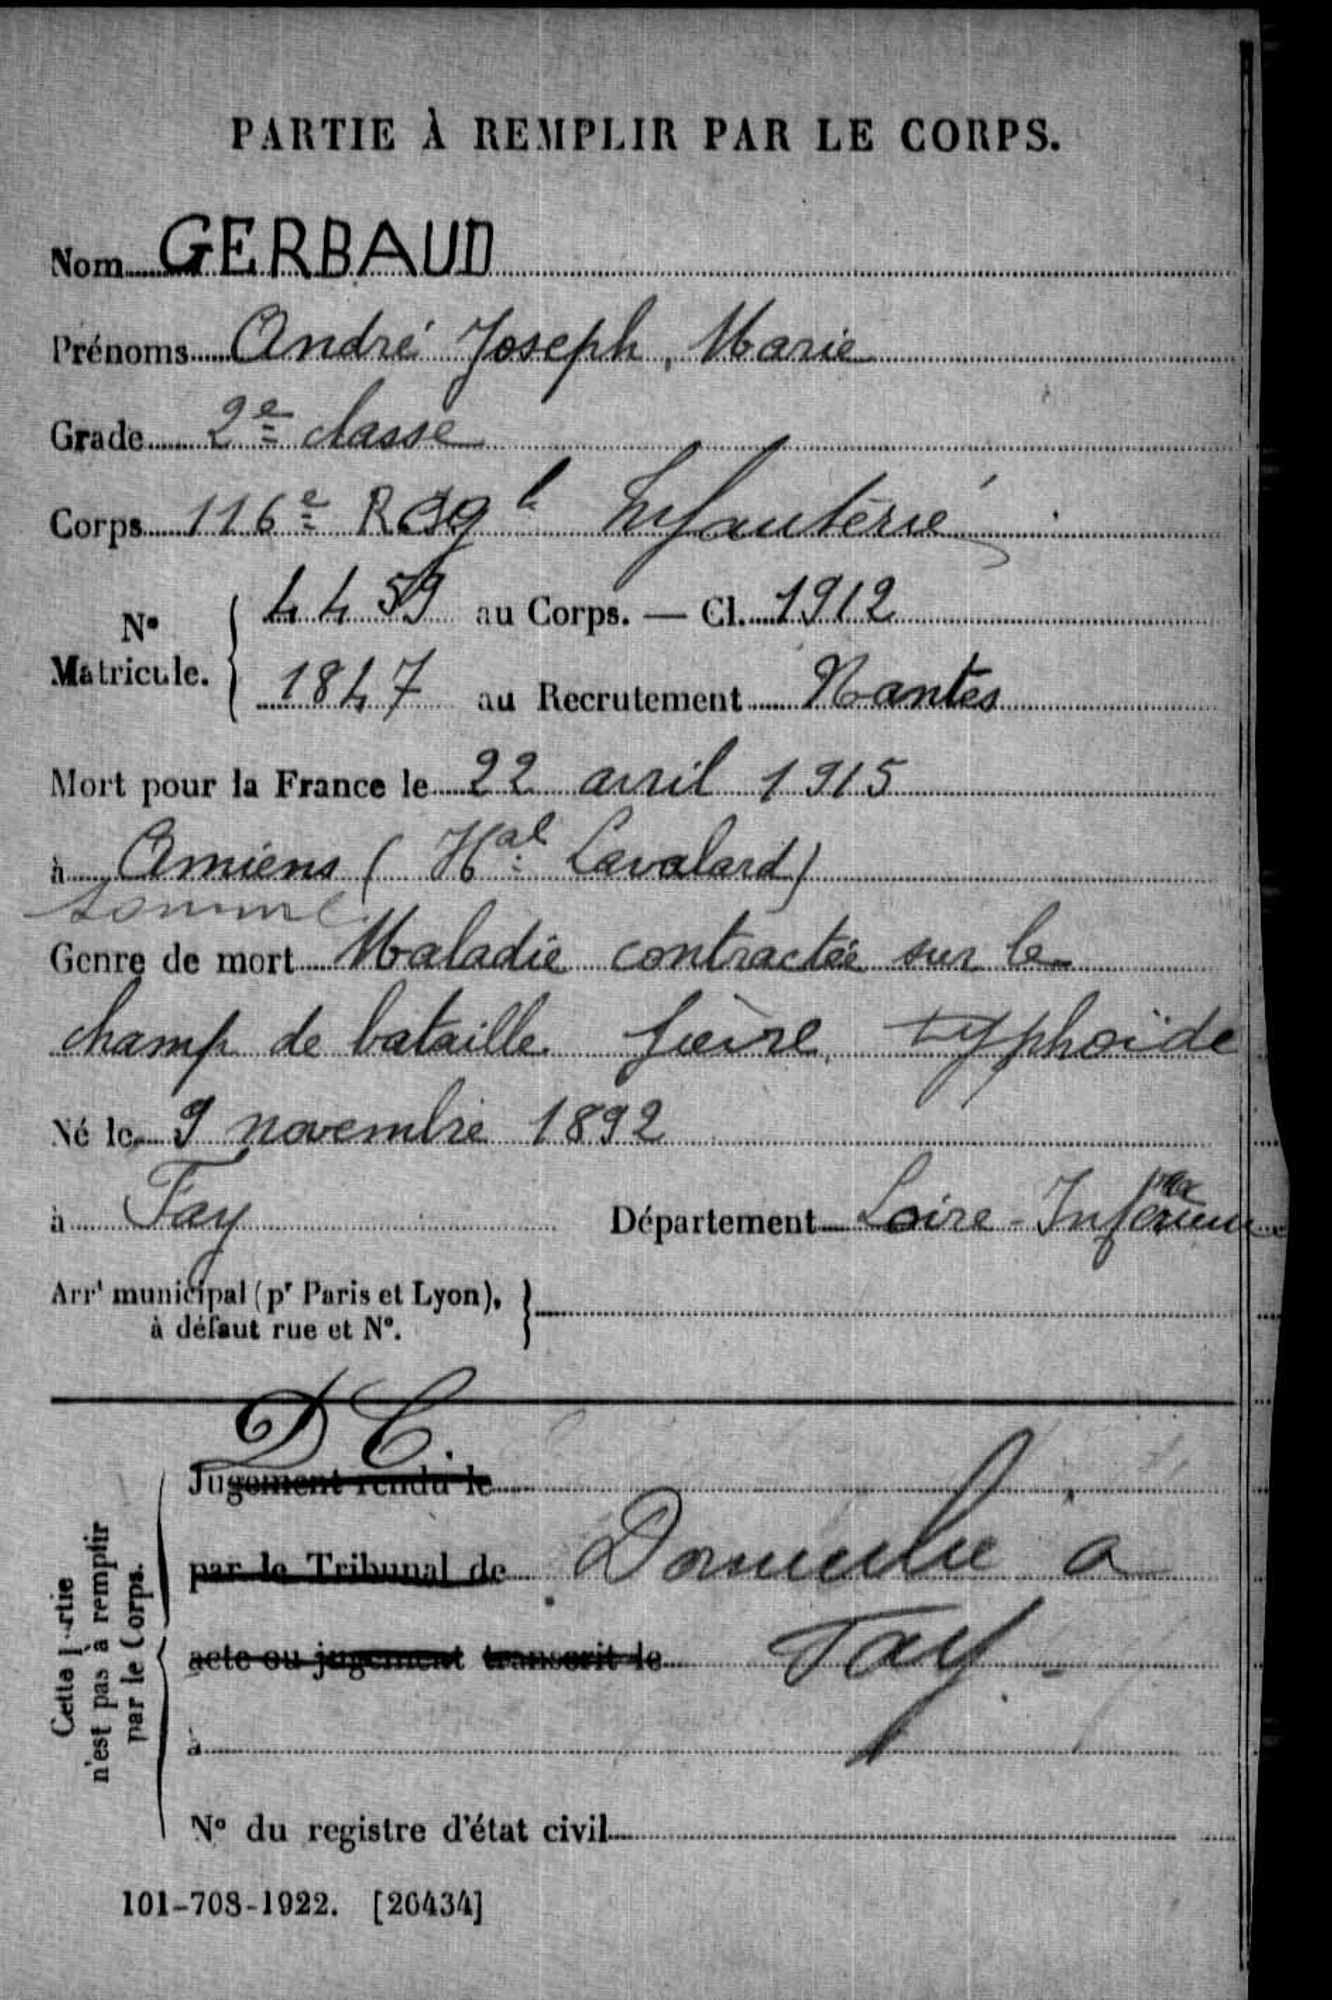 PARTIE À REMPLIR PAR LE CORPS.
Nom GERBAUD
Prénoms André Joseph, Marie
Grade 2e classe
Corps 116e Régt Infanterie
No Matricule. { 4459 au Corps. — Cl. 1912
1847 au Recrutement Nantes
Mort pour la France le 22 avril 1915
à Amiens (Hal Lavalard)
Somme
Genre de mort Maladie contractée sur le
champ de bataille fièvre typhoïde
Né le 9 novembre 1892
à Fay Département Loire-Inférieure
Arrt municipal (pr Paris et Lyon), à défaut rue et No. }
D C.
Jugement rendu le
par le Tribunal de Domicilié à
acte ou jugement transcrit le Fay -
à
No du registre d'état civil
Cette partie n'est pas à remplir par le Corps.
101-708-1922. [26434]